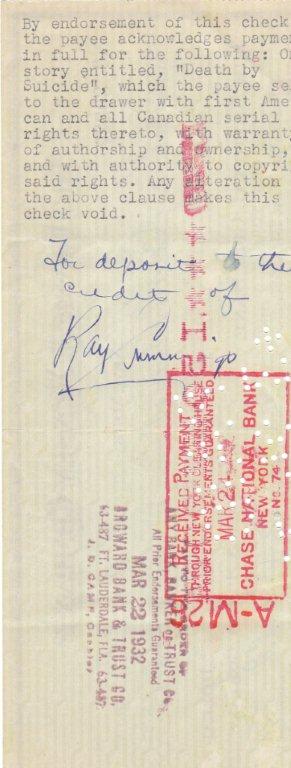 By endorsement of this check
the payee acknowledges paymen
in full for the following: On
story entitled, "Death by
Suicide", which the payee se
to the drawer with first Ame
can and all Canadian serial
rights thereto, with warrant
of authorship and ownership,
and with authority to copyri
said rights. Any alteration
the above clause makes this
check void.
For deposit to the
credit of
Ray Cummings
RECEIVED PAYMENT
THROUGH NEW YORK CLEARING HOUSE
PRIOR ENDORSEMENTS GUARANTEED
MAR 24
CHASE NATIONAL BANK
NEW YORK
No. 74
A-M2
ORDER OF
TRUST Co.
All Prior Endorsements Guaranteed
MAR 22 1932
BROWARD BANK & TRUST CO.
63-487 FT. LAUDERDALE, FLA. 63-487
J. D. CAMP, Cashier